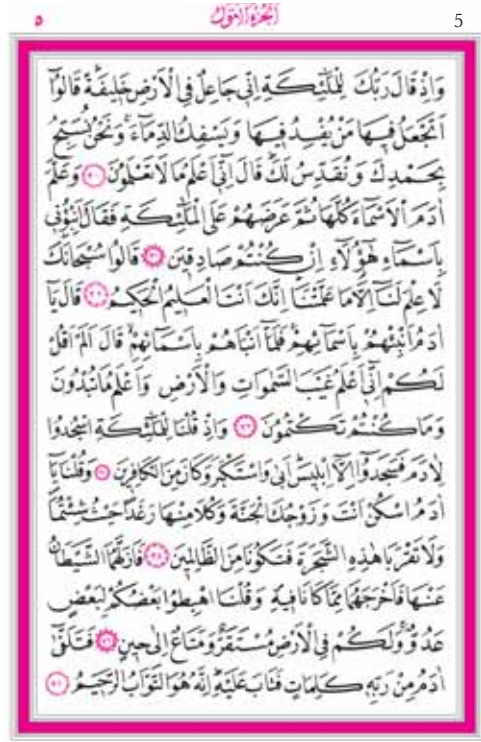 ٥ اَلْجُزْءُ الْاَوَّلُ 5
وَاِذْ قَالَ رَبُّكَ لِلْمَلٰٓئِكَةِ اِنّ۪ي جَاعِلٌ فِي الْاَرْضِ خَل۪يفَةًۜ قَالُٓوا
اَتَجْعَلُ ف۪يهَا مَنْ يُفْسِدُ ف۪يهَا وَيَسْفِكُ الدِّمَٓاءَۚ وَنَحْنُ نُسَبِّحُ
بِحَمْدِكَ وَنُقَدِّسُ لَكَۜ قَالَ اِنّ۪ٓي اَعْلَمُ مَا لَا تَعْلَمُونَ ﴿٣٠﴾ وَعَلَّمَ
اٰدَمَ الْاَسْمَٓاءَ كُلَّهَا ثُمَّ عَرَضَهُمْ عَلَى الْمَلٰٓئِكَةِ فَقَالَ اَنْبِؤُ۫ن۪ي
بِاَسْمَٓاءِ هٰٓؤُ۬لَٓاءِ اِنْ كُنْتُمْ صَادِق۪ينَ ﴿٣١﴾ قَالُوا سُبْحَانَكَ
لَا عِلْمَ لَنَٓا اِلَّا مَا عَلَّمْتَنَاۜ اِنَّكَ اَنْتَ الْعَل۪يمُ الْحَك۪يمُ ﴿٣٢﴾ قَالَ يَٓا
اٰدَمُ اَنْبِئْهُمْ بِاَسْمَٓائِهِمْۚ فَلَمَّٓا اَنْبَاَهُمْ بِاَسْمَٓائِهِمْۙ قَالَ اَلَمْ اَقُلْ
لَكُمْ اِنّ۪ٓي اَعْلَمُ غَيْبَ السَّمٰوَاتِ وَالْاَرْضِ وَاَعْلَمُ مَا تُبْدُونَ
وَمَا كُنْتُمْ تَكْتُمُونَ ﴿٣٣﴾ وَاِذْ قُلْنَا لِلْمَلٰٓئِكَةِ اسْجُدُوا
لِاٰدَمَ فَسَجَدُٓوا اِلَّٓا اِبْل۪يسَۜ اَبٰى وَاسْتَكْبَرَ وَكَانَ مِنَ الْكَافِر۪ينَ ﴿٣٤﴾ وَقُلْنَا يَٓا
اٰدَمُ اسْكُنْ اَنْتَ وَزَوْجُكَ الْجَنَّةَ وَكُلَا مِنْهَا رَغَدًا حَيْثُ شِئْتُمَاۖ
وَلَا تَقْرَبَا هٰذِهِ الشَّجَرَةَ فَتَكُونَا مِنَ الظَّالِم۪ينَ ﴿٣٥﴾ فَاَزَلَّهُمَا الشَّيْطَانُ
عَنْهَا فَاَخْرَجَهُمَا مِمَّا كَانَا ف۪يهِۖ وَقُلْنَا اهْبِطُوا بَعْضُكُمْ لِبَعْضٍ
عَدُوٌّۚ وَلَكُمْ فِي الْاَرْضِ مُسْتَقَرٌّ وَمَتَاعٌ اِلٰى ح۪ينٍ ﴿٣٦﴾ فَتَلَقّٰٓى
اٰدَمُ مِنْ رَبِّه۪ كَلِمَاتٍ فَتَابَ عَلَيْهِۜ اِنَّهُ هُوَ التَّوَّابُ الرَّح۪يمُ ﴿٣٧﴾